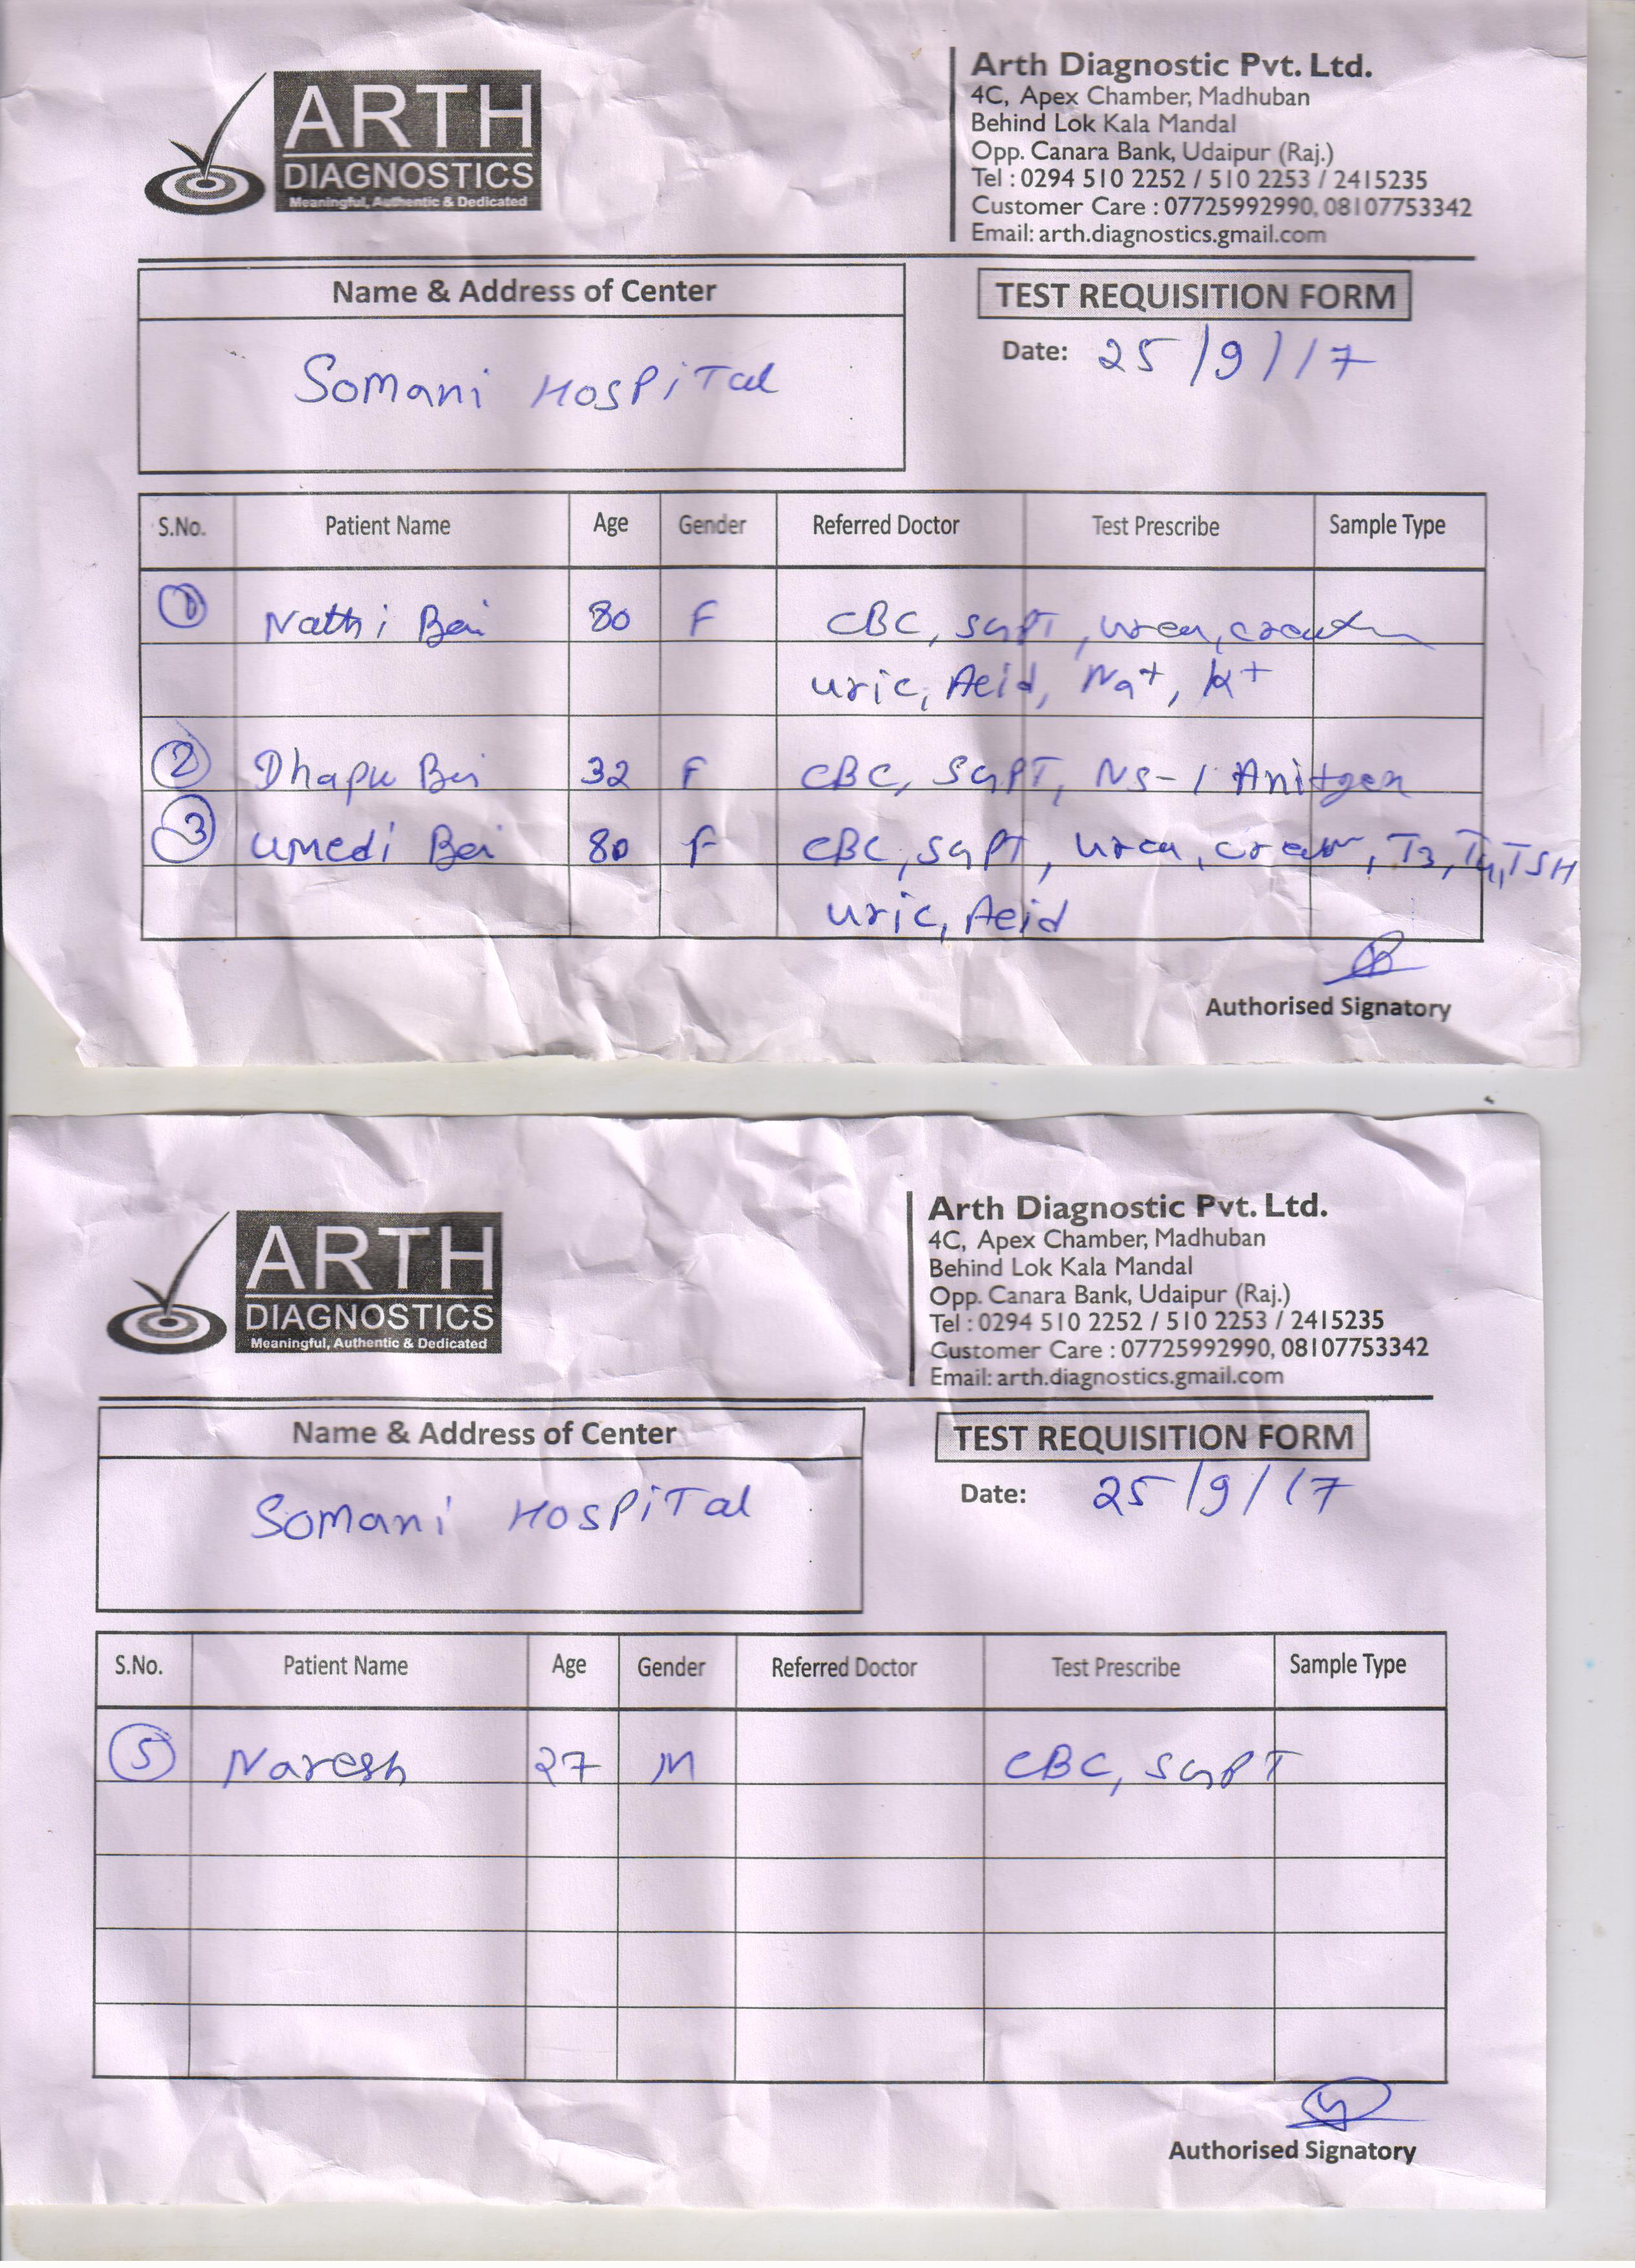 ARTH
DIAGNOSTICS
Meaningful, Authentic & Dedicated
Arth Diagnostic Pvt. Ltd.
4C, Apex Chamber, Madhuban
Behind Lok Kala Mandal
Opp. Canara Bank, Udaipur (Raj.)
Tel : 0294 510 2252 / 510 2253 / 2415235
Customer Care : 07725992990, 08107753342
Email: arth.diagnostics.gmail.com
Name & Address of Center
TEST REQUISITION FORM
Somani HospiTal
Date: 25/9/17
S.No. Patient Name Age Gender Referred Doctor Test Prescribe Sample Type
1 Nathi Bai 80 F CBC, SGPT, urea,
uric, Acid, Na+, K+
2 Dhapu Bai 32 F CBC, SGPT, NS-1 Anitgen
3 Umedi Bai 80 F CBC, SGPT, urea, T3, T4, TSH
uric, Acid
Authorised Signatory
ARTH
DIAGNOSTICS
Meaningful, Authentic & Dedicated
Arth Diagnostic Pvt. Ltd.
4C, Apex Chamber, Madhuban
Behind Lok Kala Mandal
Opp. Canara Bank, Udaipur (Raj.)
Tel : 0294 510 2252 / 510 2253 / 2415235
Customer Care : 07725992990, 08107753342
Email: arth.diagnostics.gmail.com
Name & Address of Center
TEST REQUISITION FORM
Somani HospiTal
Date: 25/9/17
S.No. Patient Name Age Gender Referred Doctor Test Prescribe Sample Type
5 Naresh 27 M CBC, SGPT
Authorised Signatory